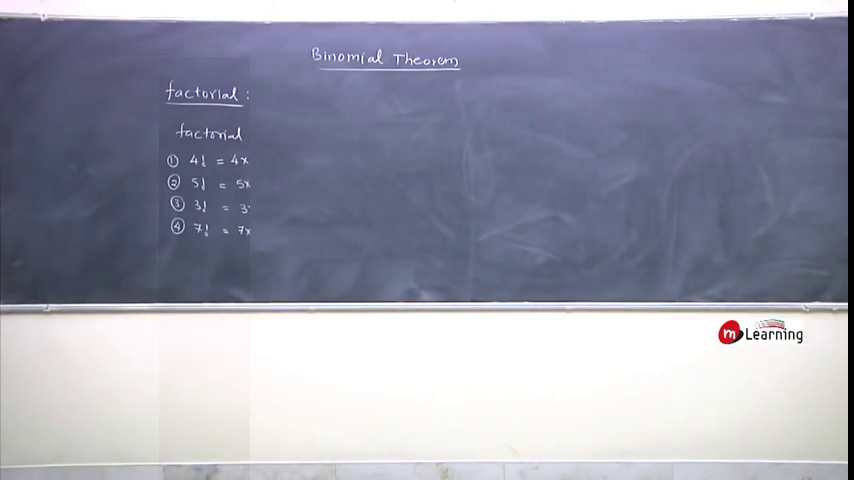 Binomial Theorem
factorial :
factorial
① 4! = 4x
② 5! = 5x
③ 3! = 3
④ 7! = 7x
m Learning